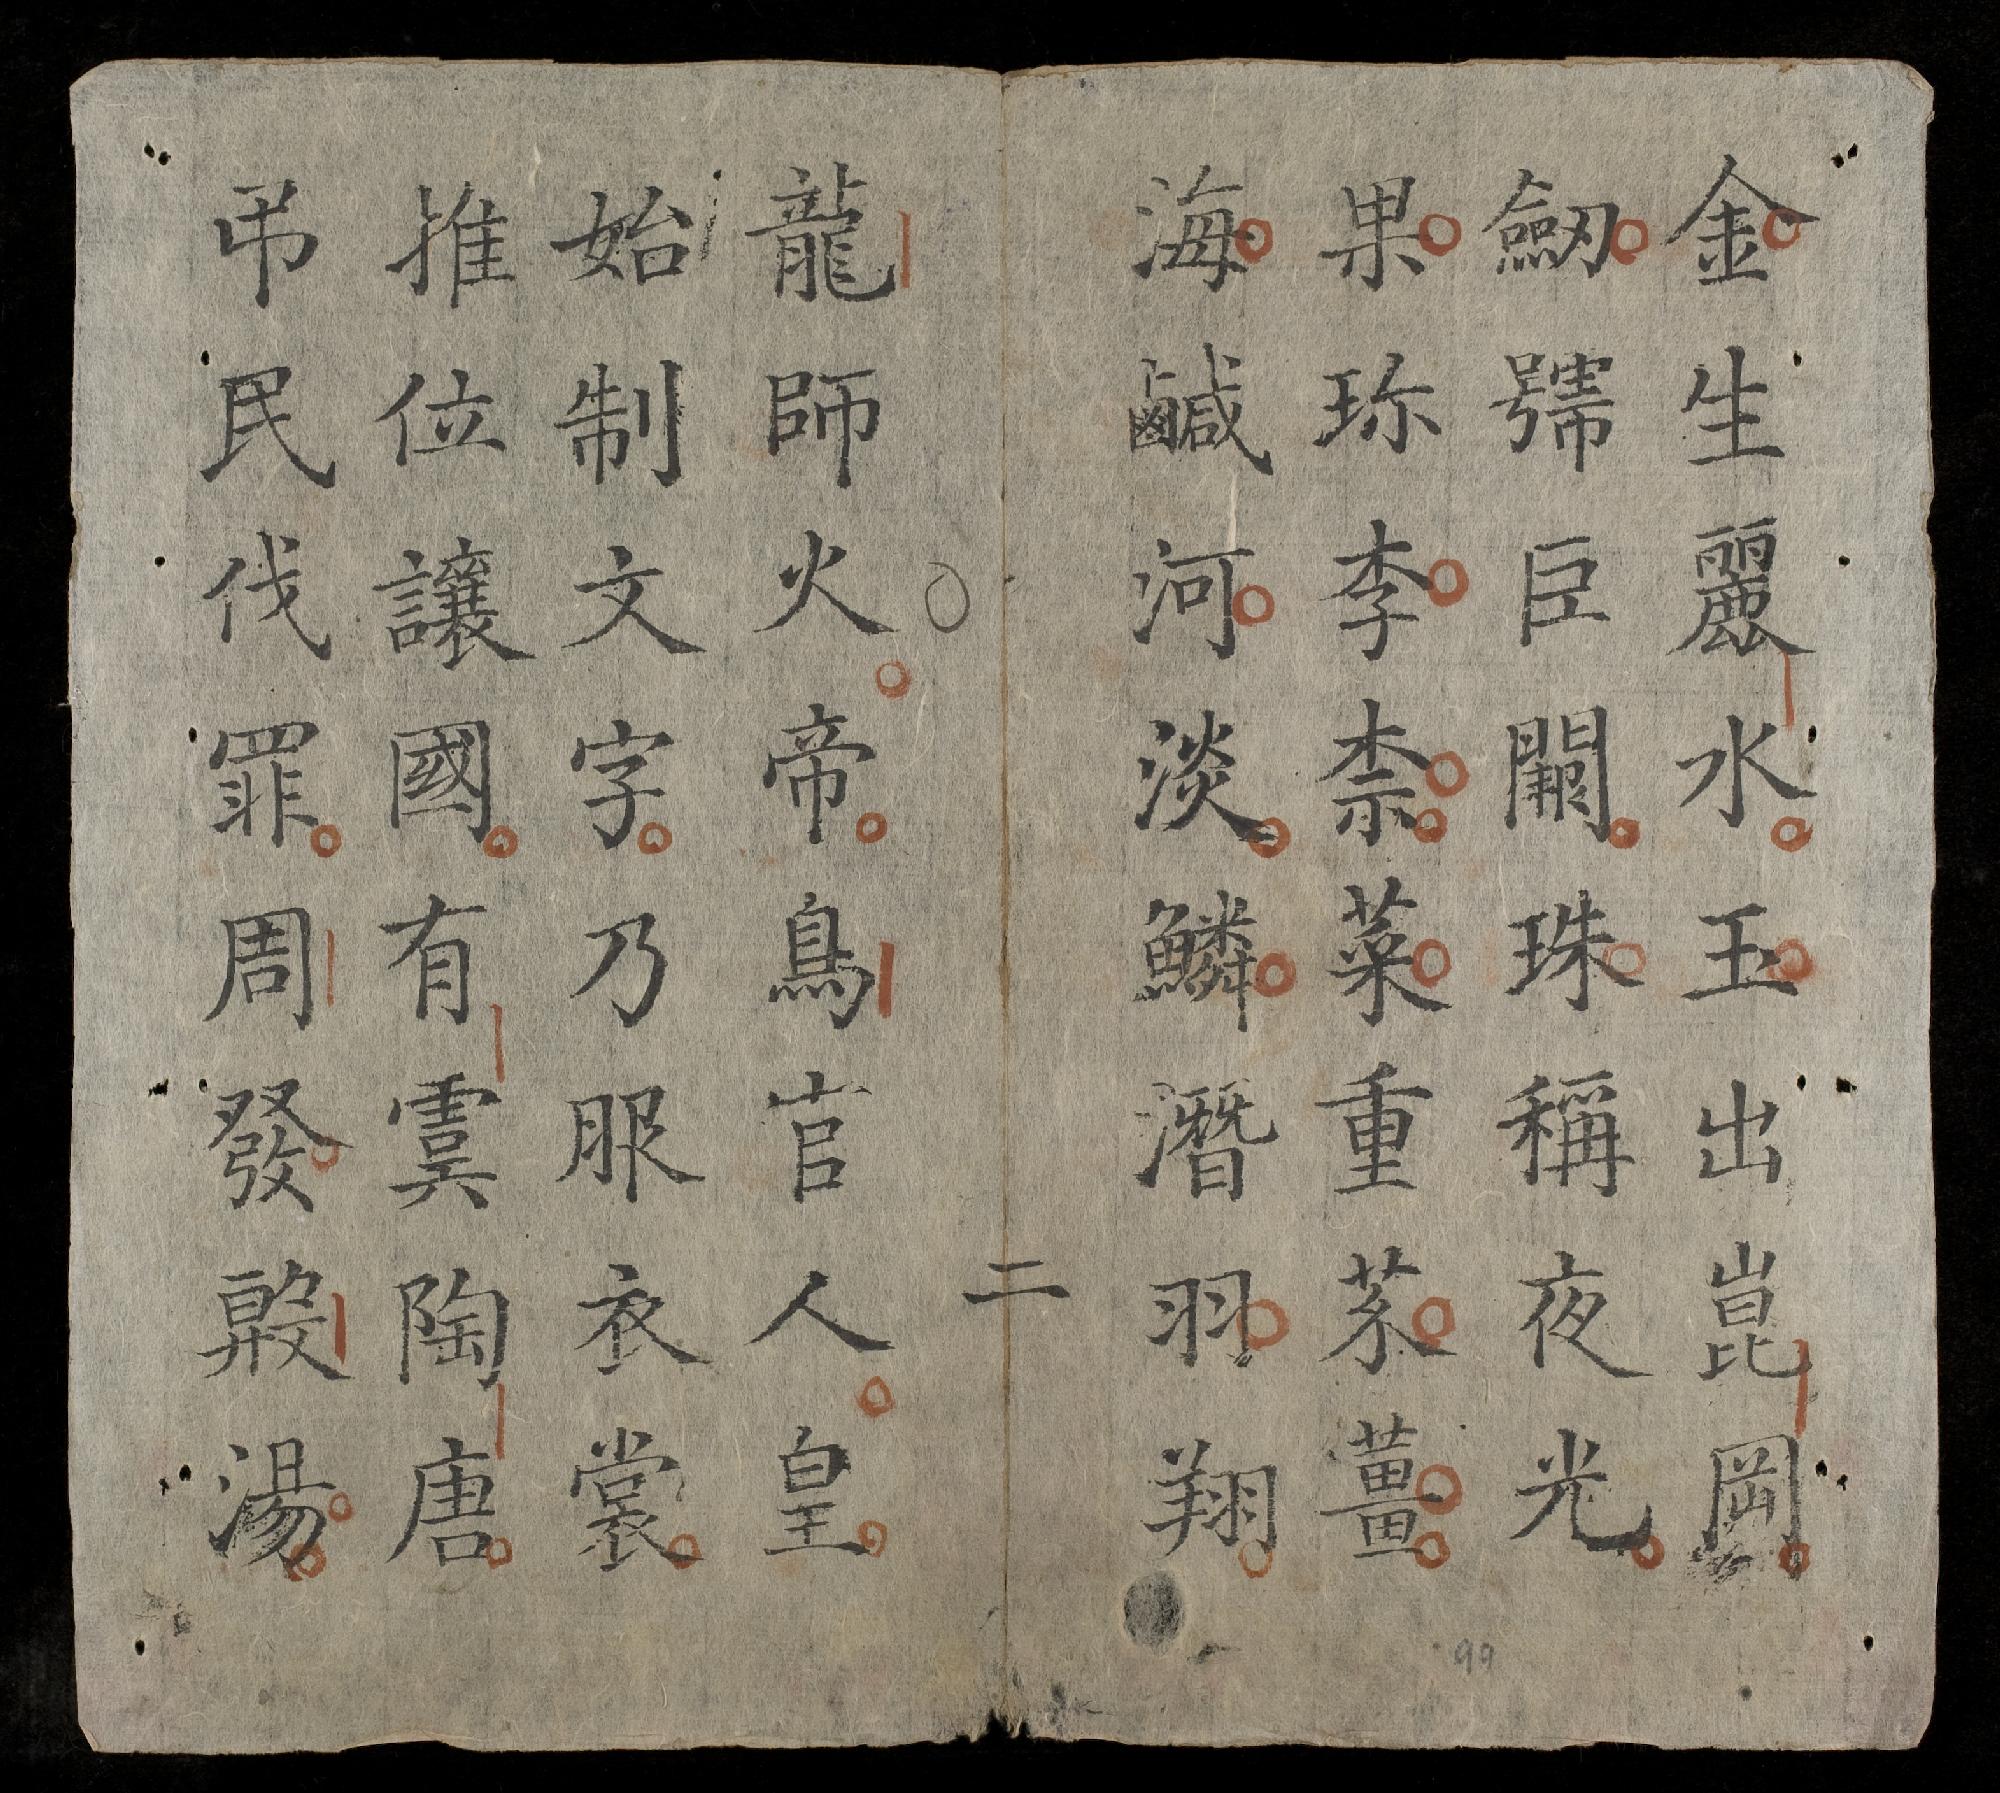 金生麗水玉出崑岡
劒號巨闕珠稱夜光
果珎李柰菜重芥薑
海鹹河淡鱗潛羽翔
二
龍師火帝鳥官人皇
始制文字乃服衣裳
推位讓國有虞陶唐
弔民伐罪周發殷湯
99